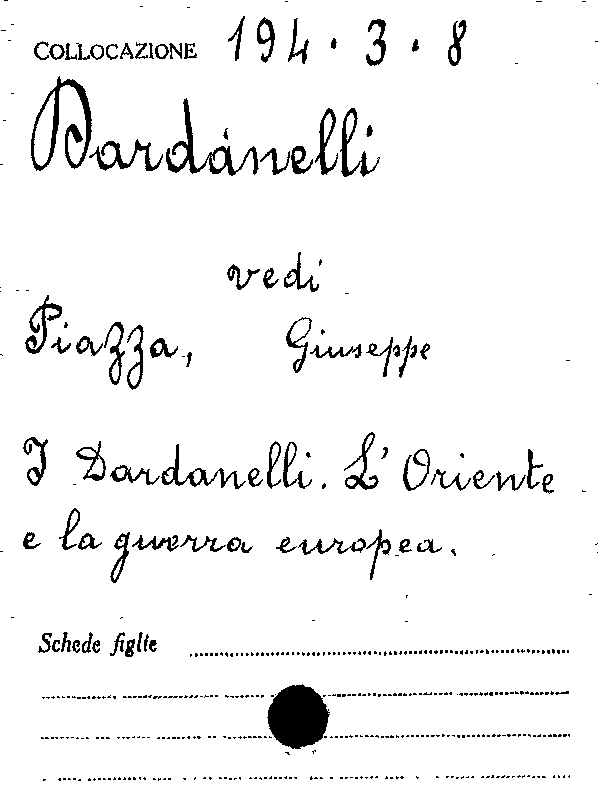 COLLOCAZIONE 194.3.8
Dardanelli
vedi
Piazza, Giuseppe
I Dardanelli. L'Oriente
e la guerra europea.
Schede figlie